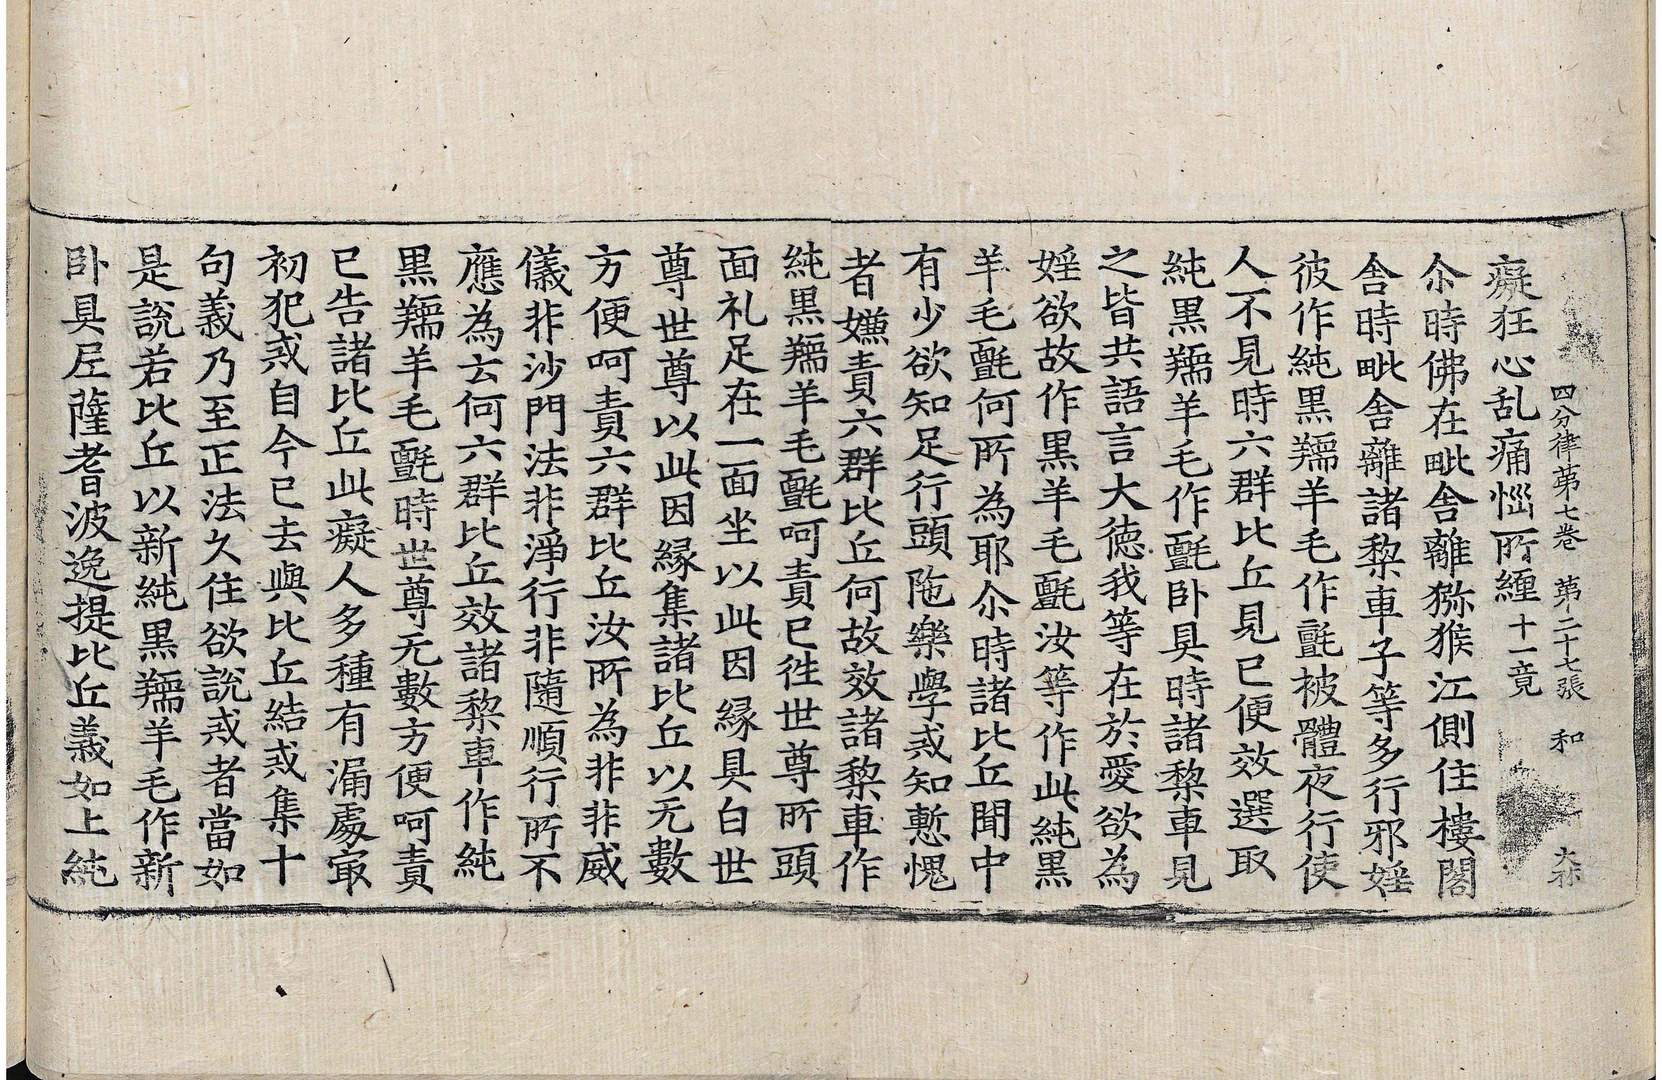 四分律第七卷 第二十七張 和
癡狂心乱痛惱所纏十一竟
尒時佛在毗舎離獼猴江側住樓閣
舎時毗舎離諸黎車子等多行邪婬
彼作純黒羺羊毛作氈被體夜行使
人不見時六群比丘見已便效選取
純黒羺羊毛作氈卧具時諸黎車見
之皆共語言大徳我等在於愛欲為
婬欲故作黒羊毛氈汝等作此純黒
羊毛氈何所為耶尒時諸比丘聞中
有少欲知足行頭陁樂學戒知慙愧
者嫌責六群比丘何故效諸黎車作
純黒羺羊毛氈呵責已徃世尊所頭
面礼足在一面坐以此因縁具白世
尊世尊以此因縁集諸比丘以无數
方便呵責六群比丘汝所為非非威
儀非沙門法非淨行非隨順行所不
應為云何六群比丘效諸黎車作純
黒羺羊毛氈時世尊无數方便呵責
已告諸比丘此癡人多種有漏處冣
初犯戒自今已去與比丘結戒集十
句義乃至正法久住欲說戒者當如
是說若比丘以新純黒羺羊毛作新
卧具尼薩耆波逸提比丘義如上純